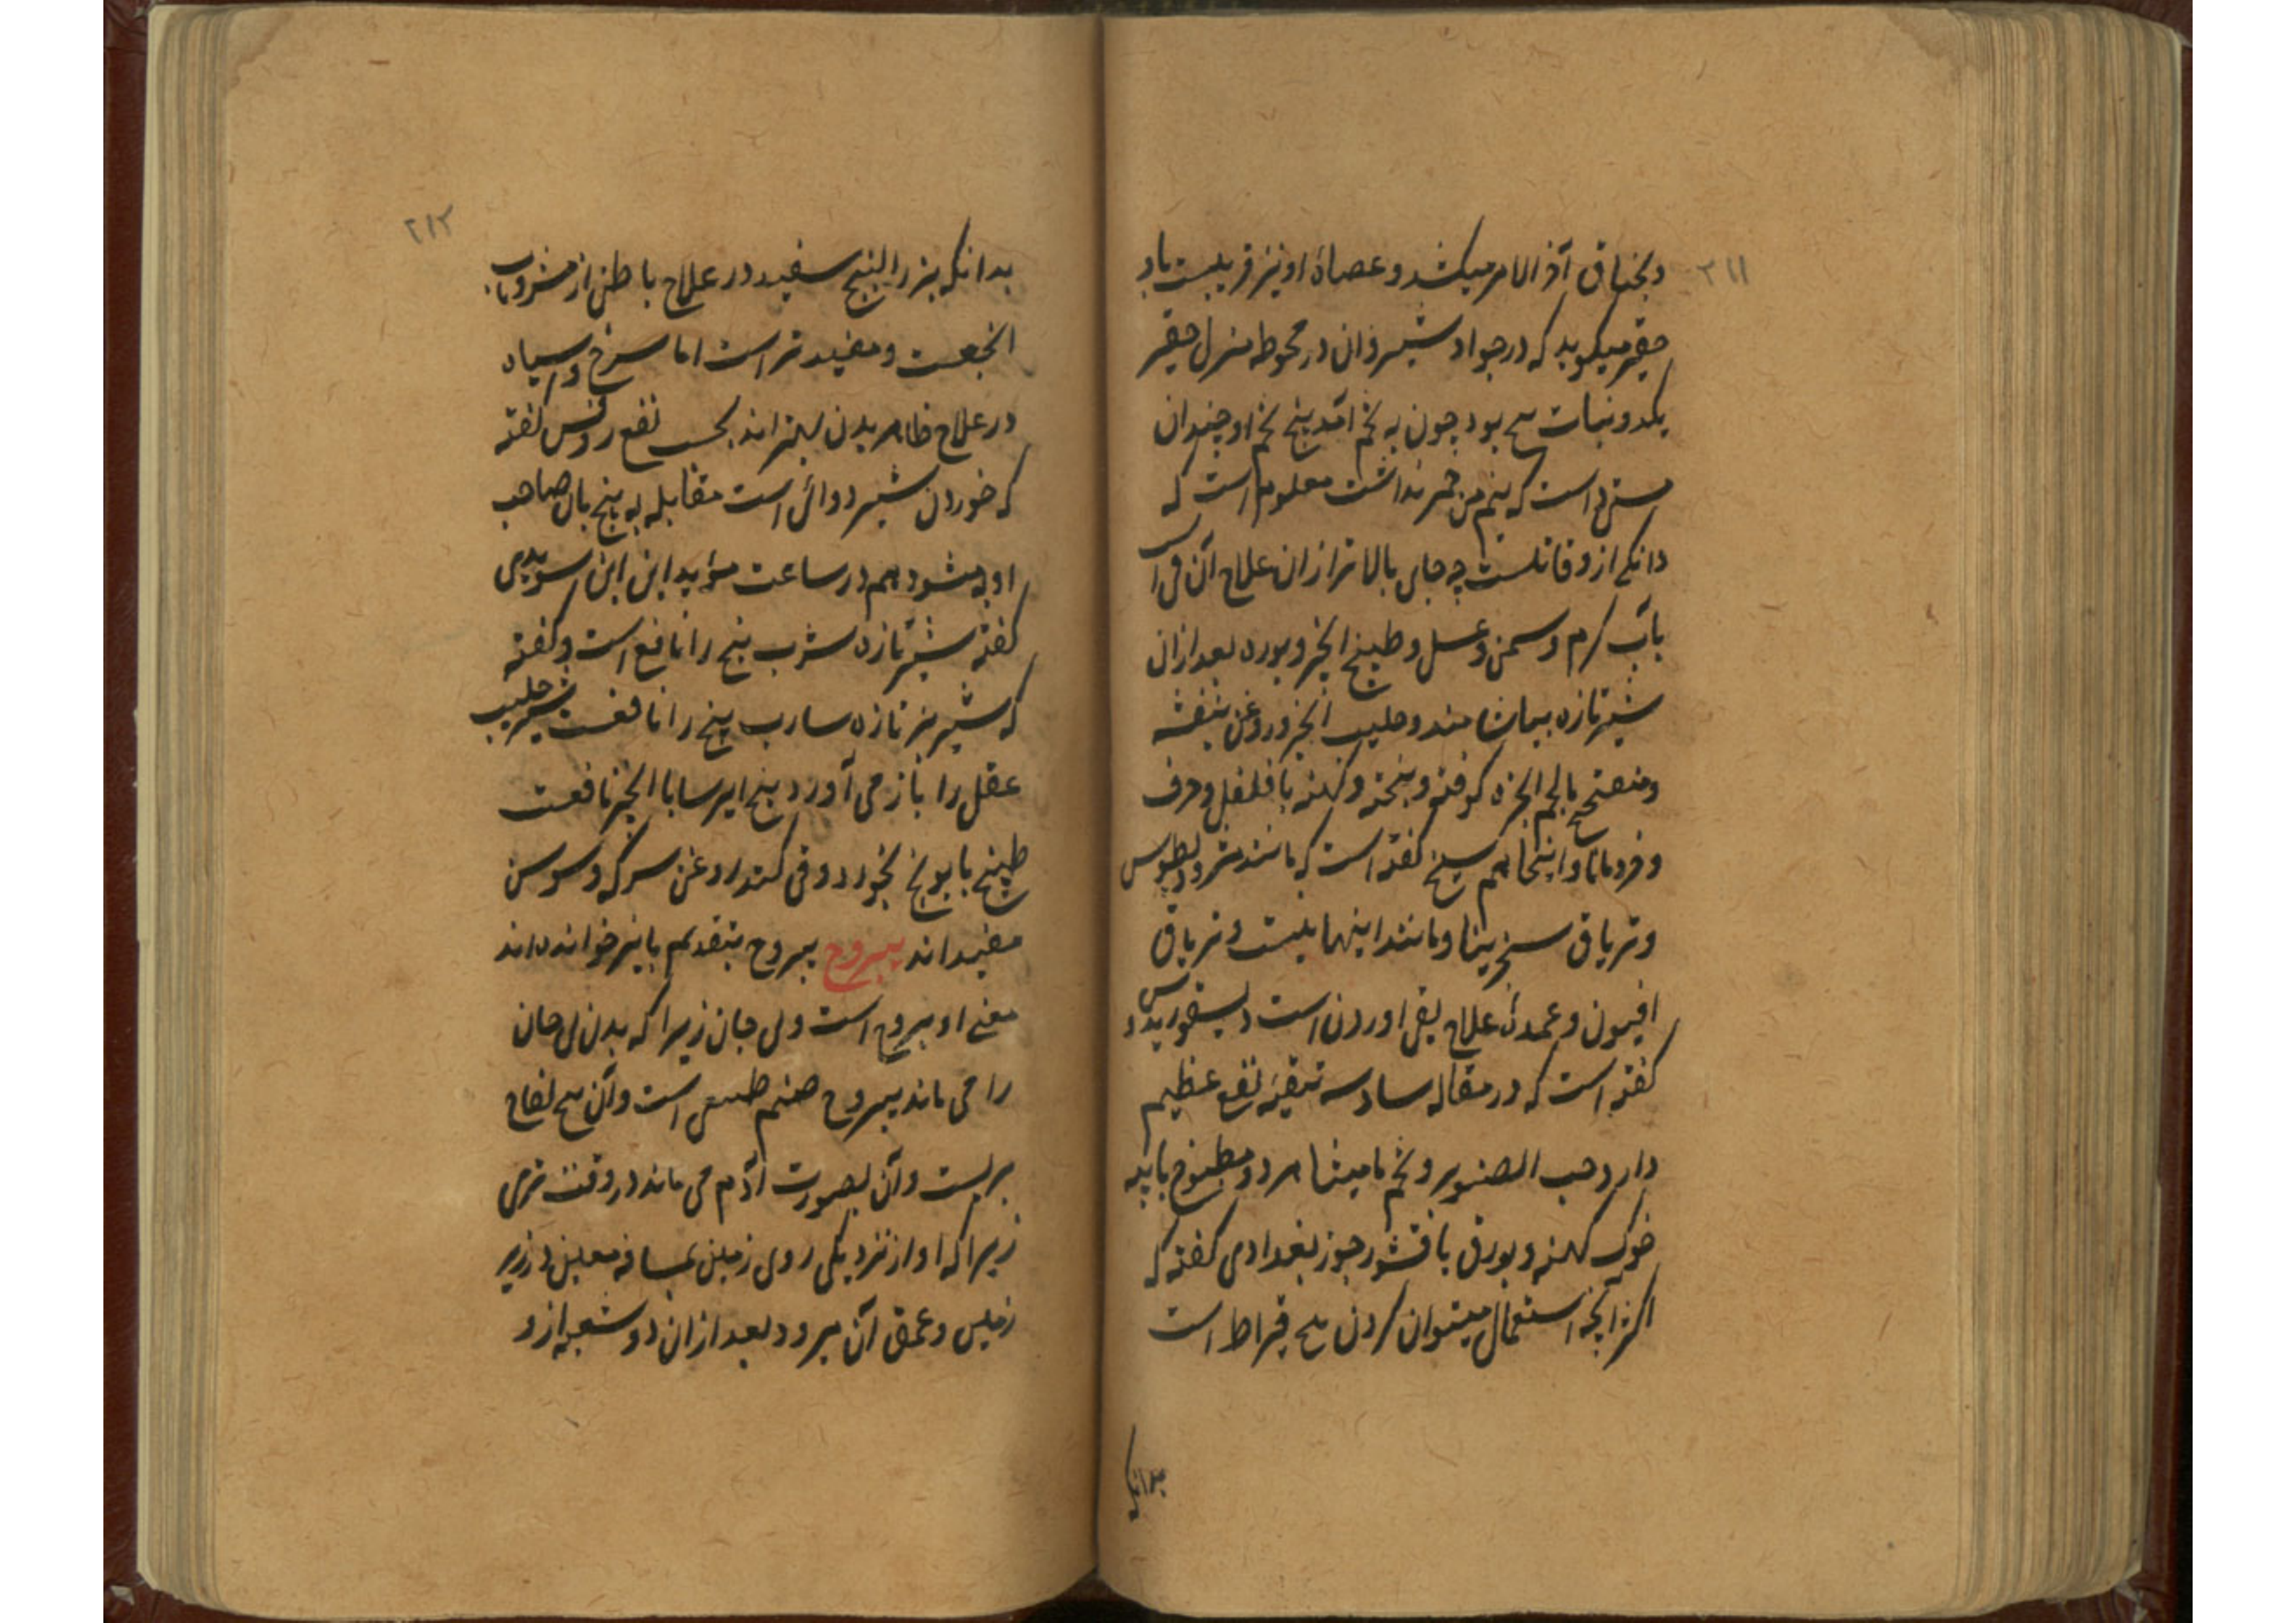 ۲۱۱
و بخناق آخر الامر میکشد و عصاة او نیز قریبست باو
حقیر میکوید که در جواد شیروان در محوطه منزل حقیر
یکدو نبات بود چون به تخم آمد پنج تخم او چندان
است که نیم من خمر نداشت معلوم است که
دانکی ازو قاتلست چه جای بالاتر از ان علاج آن قی است
بآب کرم و سمن و عسل و طبیخ انجیر و بوره بعد از ان
شیر تازه بیاشامند و حلیب انجیر و روغن بنفشه
و بالحم کوفته و پخته و کهنه با فلفل و حرف
و قردمانا و اینجا هم شیخ گفته است که مانند مثرودیطوس
و تریاق سنجرینا و مانند اینها نیست و تریاق
افیون و عمدۀ علاج بقی اوردن است دیسقوریدوس
گفته است که در مقاله سادسه تنقیه نفع عظیم
دارد حب الصنوبر و تخم مامیثا مرد و مطبوخ با پیه
خوک کهنه و بورق با قشور جوز بغدادی گفته که
اکثر آنچه استعمال میتوان کردن قیراط است
بدانکه
۲۱۲
بدانکه بزر البنج سفید در علاج باطن از مشروبات
انجعست و مفید تر است اما سرخ و سیاه
در علاج ظاهر بدن بهتر اند بحسب نفع روفس گفته
که خوردن شیر دوائی است مقابله به بنج بال صاحب
او به شود هم در ساعت مؤید این ابن سویدی
گفته شیر تازه شرب بنج را نافع است و گفته
که شیر بز تازه شارب بنج را نافعست شیر حلیب
عقل را باز می آورد بیخ ایرسا با انجیر نافعست
طبیخ بابونج بخورد و قی کند روغن سرکه و سوسن
مفیداند یبروح یبروح بتقدیم یا نیز خوانده اند
معنی او یبروح است ولی جان زیرا که بدن بی جان
را می ماند یبروح صنم طبیعی است و آن بیخ لفاح
بریست و آن بصورت آدم می ماند در وقت تری
زیرا که او از نزدیکی روی زمین بمسافه معین در زیر
زمین و عمق آن میرود بعد از ان دو شعبه ازو